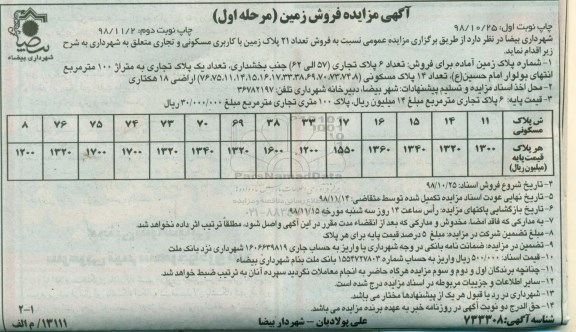 آگهی مزایده فروش زمین (مرحله اول)
چاپ نوبت اول: ۹۸/۱۰/۲۵
چاپ نوبت دوم: ۹۸/۱۱/۲
شهرداری بیضاء
شهرداری بیضا در نظر دارد از طریق برگزاری مزایده عمومی نسبت به فروش تعداد ۲۱ پلاک زمین با کاربری مسکونی و تجاری متعلق به شهرداری به شرح
زیر اقدام نماید.
۱- شماره پلاک زمین آماده برای فروش: تعداد ۶ پلاک تجاری (۵۷ الی ۶۲) جنب بخشداری، تعداد یک پلاک تجاری به متراژ ۱۰۰ مترمربع
انتهای بولوار امام حسین(ع)، تعداد ۱۴ پلاک مسکونی (۷۶،۷۵،۱۱،۱۴،۱۵،۱۶،۱۷،۳۳،۳۸،۶۹،۷۰،۷۳،۷۴،۸) اراضی ۱۸ هکتاری
۲- محل اخذ اسناد مزایده و تسلیم پیشنهادات: شهر بیضا، دبیرخانه شهرداری تلفن: ۳۶۷۸۲۱۹۷
۳- قیمت پایه: ۶ پلاک تجاری مترمربع مبلغ ۱۴ میلیون ریال، پلاک ۱۰۰ متری تجاری مترمربع مبلغ ۳۰/۰۰۰/۰۰۰ ریال
ش پلاک مسکونی ۱۱ ۱۴ ۱۵ ۱۶ ۱۷ ۳۳ ۳۸ ۶۹ ۷۰ ۷۳ ۷۴ ۷۵ ۷۶ ۸
هر پلاک قیمت پایه (میلیون ریال) ۱۳۰۰ ۱۳۲۰ ۱۳۴۰ ۱۳۶۰ ۱۵۵۰ ۱۲۰۰ ۱۶۰۰ ۱۳۲۰ ۱۳۴۰ ۱۳۲۰ ۱۷۰۰ ۱۷۰۰ ۱۳۲۰ ۱۲۰۰
۴- تاریخ شروع فروش اسناد: ۹۸/۱۰/۲۵
۵- تاریخ نهایی عودت اسناد مزایده تکمیل شده توسط متقاضی: ۹۸/۱۱/۱۴
۶- تاریخ بازگشایی پاکتهای مزایده: رأس ساعت ۱۴ روز سه شنبه مورخه ۹۸/۱۱/۱۵
۷- به مدارکی که فاقد امضا، مخدوش و مدارکی که بعد از انقضاء مدت مقرر در این آگهی واصل شود، مطلقاً ترتیب اثر داده نخواهد شد.
۸- مبلغ تضمین شرکت در مزایده: مبلغ ۵ درصد قیمت پایه برای هر پلاک
۹- تضمین در مزایده: ضمانت نامه بانکی در وجه شهرداری یا واریز به حساب جاری ۱۶۰۶۶۳۹۸۱۹ شهرداری نزد بانک ملت
۱۰- قیمت اسناد: ۵۰۰/۰۰۰ ریال واریز به حساب شماره ۱۵۵۴۷۲۷۸۰۳ بانک ملت بنام شهرداری بیضاء
۱۱- چنانچه برندگان اول و دوم و سوم مزایده هرگاه حاضر به انجام معاملات نگردید سپرده آنان به ترتیب ضبط خواهد شد.
۱۲- سایر اطلاعات و جزییات مربوطه در اسناد مزایده درج شده است.
۱۳- شهرداری در رد یا قبول هر یک از پیشنهادها مختار می باشد.
۱۴- حق الدرج دو نوبت آگهی در روزنامه خبر به عهده برنده مزایده می باشد.
۲-۱
شناسه آگهی: ۷۳۳۳۰۸
علی پولادیان - شهردار بیضا
۱۳۱۱۱/ م الف